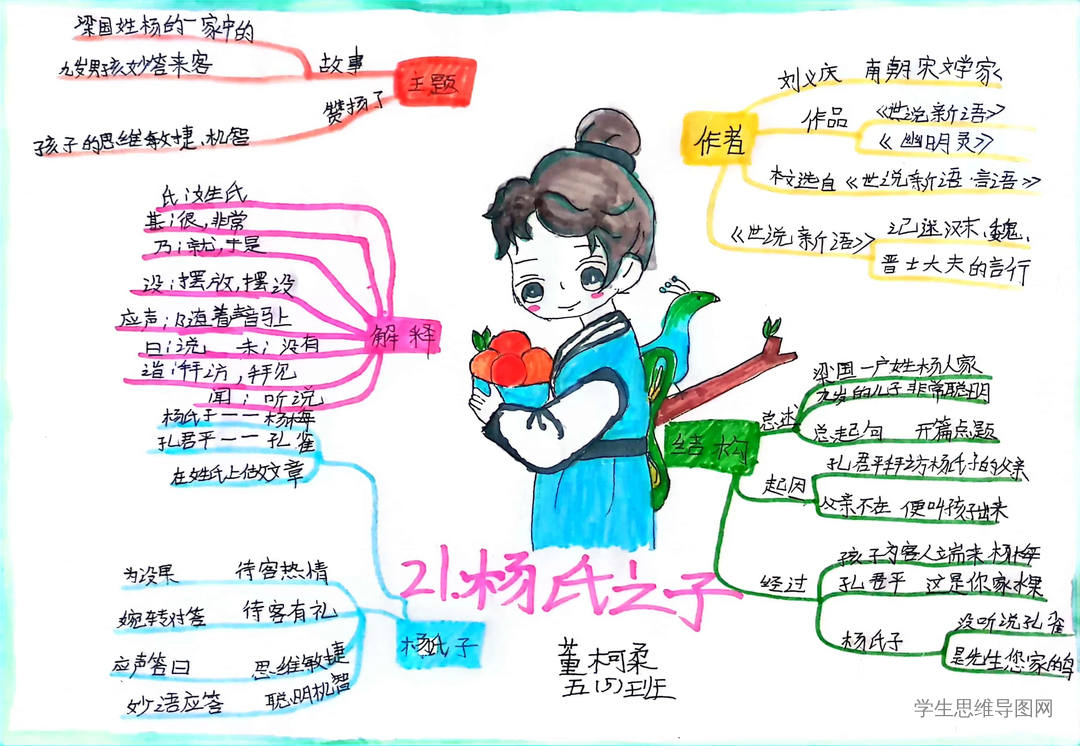 梁国姓杨的一家中的
九岁男孩妙答来客
故事
主题
赞扬了
孩子的思维敏捷、机智
作者
刘义庆 南朝宋文学家
作品
《世说新语》
《幽明灵》
本文选自《世说新语·言语》
《世说新语》
记述汉末、魏、
晋士大夫的言行
解释
氏:姓氏
甚:很,非常
乃:就,于是
设:摆放,摆设
应声:随着声音马上
曰:说 未:没有
造:拜访,拜见
闻:听说
杨氏子——杨梅
孔君平——孔雀
在姓氏上做文章
为设果 待客热情
婉转对答 待客有礼
应声答曰 思维敏捷
妙语应答 聪明机智
杨氏子
21.杨氏之子
董柯柔
五(5)班
结构
总述
梁国一户姓杨人家
九岁的儿子非常聪明
总起句 开篇点题
起因
孔君平拜访杨氏子的父亲
父亲不在 便叫孩子出来
经过
孩子为客人端来杨梅
孔君平 这是你家水果
杨氏子
没听说孔雀
是先生您家的鸟
学生思维导图网